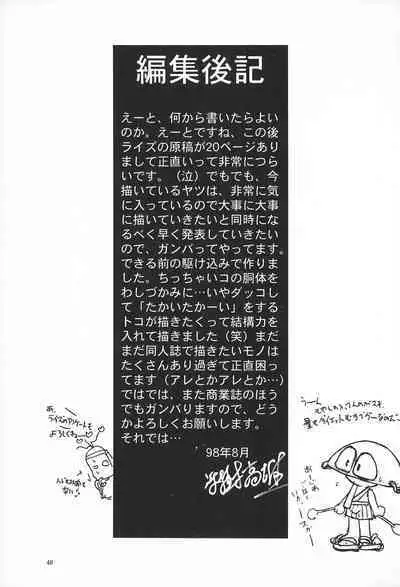 編集後記
えーと、何から書いたらよい
のか。えーとですね、この後
ライズの原稿が20ページあり
まして正直いって非常につら
いです。（泣）でもでも、今
描いているヤツは、非常に気
に入っているので大事に大事
に描いていきたいと同時にな
るべく早く発表していきたい
ので、ガンバってやってます。
できる前の駆け込みで作りま
した。ちっちゃいコの胴体を
わしづかみに…いやダッコし
て「たかいたかーい」をする
トコが描きたくって結構力を
入れて描きました（笑）まだ
まだ同人誌で描きたいモノは
たくさんあり過ぎて正直困っ
てます（アレとかアレとか…）
ではでは、また商業誌のほう
でもガンバりますので、どう
かよろしくお願いします。
それでは…
98年8月
あ、
ライズのアンケートも
よろしくネ
48